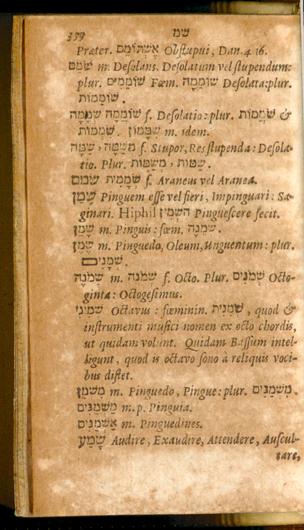 399 שמ
Præter. אֶשְׁתּוֹמַם Obstupui, Dan. 4. 16.
שֹׁמֵם m. Desolans. Desolatum vel stupendum:
plur. שׁוֹמֵמִים Fœm. שׁוֹמֵמָה Desolata: plur.
שׁוֹמֵמוֹת.
שְׁמָמָה f. Desolatio: plur. שְׁמָמוֹת &
שִׁמָּמוֹת. שִׁמָּמוֹן m. idem.
f. Stupor, Res stupenda: Desola-
tio. Plur.
שְׂמָמִית f. Araneus vel Aranea.
שָׁמַן Pinguem esse vel fieri, Impinguari: Sa-
ginari. Hiphil הִשְׁמִין Pinguescere fecit.
שָׁמֵן m. Pinguis: fœm. שְׁמֵנָה.
שֶׁמֶן m. Pinguedo, Oleum, Unguentum: plur.
שְׁמָנִים
שְׁמֹנָה m. שְׁמֹנֶה f. Octo. Plur. שְׁמֹנִים Octo-
ginta: Octogesimus.
שְׁמִינִי Octavus: fœminin. שְׁמִינִית, quod &
instrumenti musici nomen ex octo chordis,
ut quidam volunt. Quidam Bassum intel-
ligunt, quod is octavo sono à reliquis voci-
bus distet.
מִשְׁמָן m. Pinguedo, Pingue: plur. מִשְׁמַנִּים.
מַשְׁמַנִּים m. p. Pinguia.
אַשְׁמַנִּים m. Pinguedines.
שָׁמַע Audire, Exaudire, Attendere, Auscul-
tare,